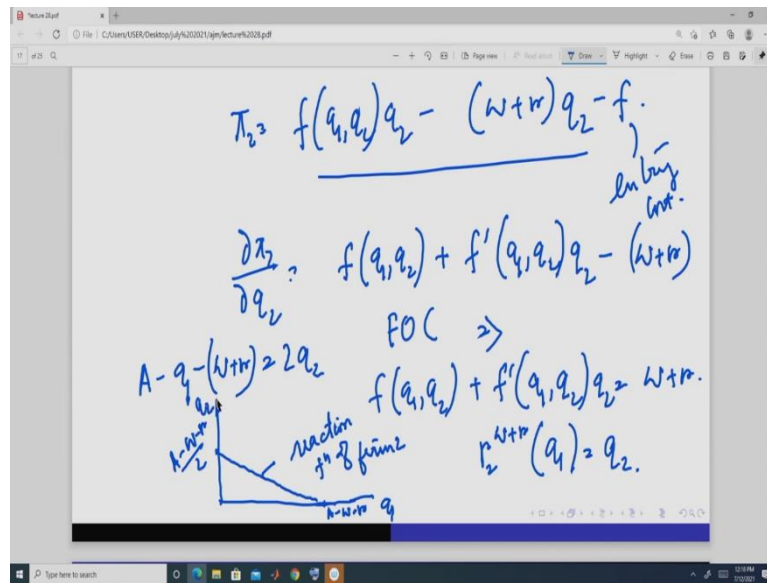 lecture 28.pdf
File | C:/Users/USER/Desktop/july%202021/ajm/lecture%2028.pdf
17 of 25
Page view | Read aloud | Draw | Highlight | Erase
π₂ = f(q₁,q₂)q₂ - (w+r)q₂ - f.
entry
cost.
∂π₂/∂q₂ = f(q₁,q₂) + f'(q₁,q₂)q₂ - (w+r)
FOC ⇒
A - q₁ - (w+r) = 2q₂
f(q₁,q₂) + f'(q₁,q₂)q₂ = w+r.
q₂
A-w-r/2
reaction
fⁿ of firm 2
r₂^{w+r}(q₁) = q₂.
A-w-r q₁
Type here to search
12:18 PM
7/12/2021